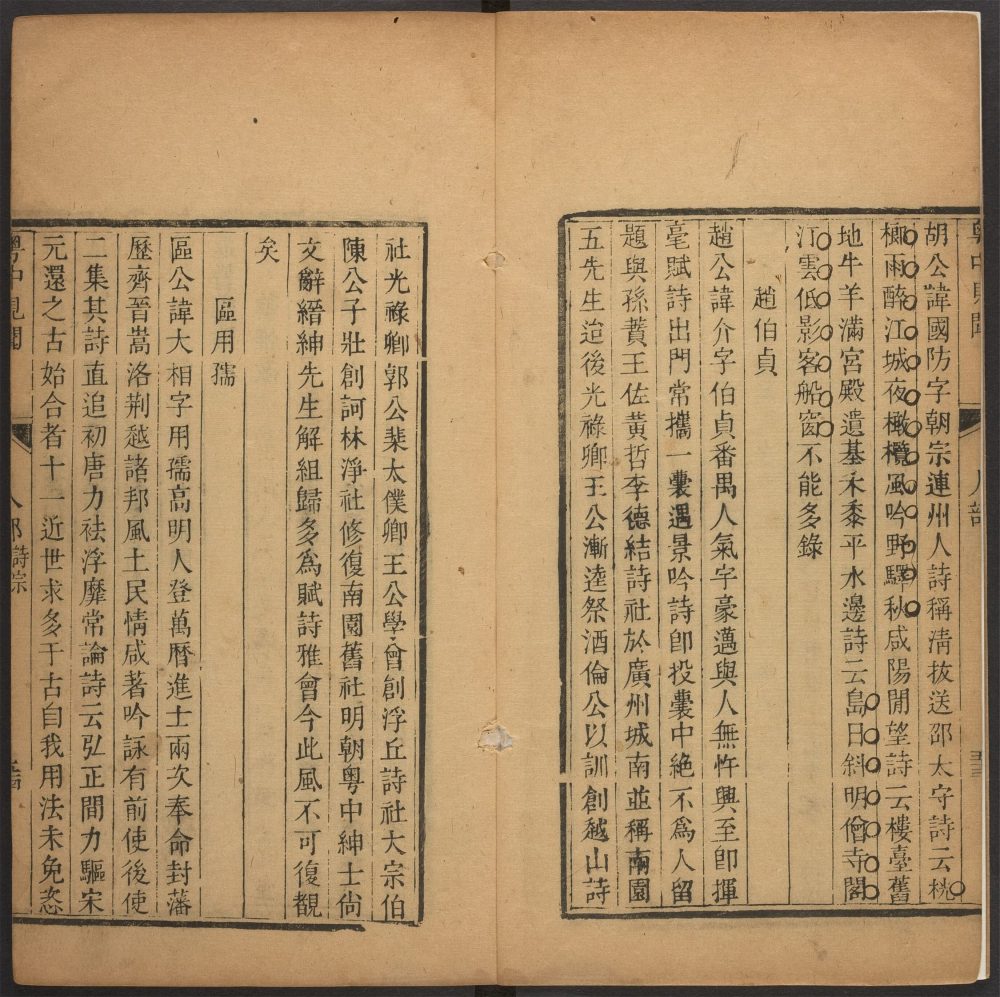 胡公諱國防字朝宗連州人詩稱清拔送邵太守詩云桄
榔雨醉江城夜橄欖風吟野驛秋咸陽閒望詩云樓臺舊
地牛羊滿宮殿遺基禾黍平水邊詩云島日斜明僧寺閣
江雲低影客船窗不能多錄
趙伯貞
趙公諱介字伯貞番禺人氣宇豪邁與人無忤興至卽揮
毫賦詩出門常攜一囊遇景吟詩卽投囊中絶不爲人留
題與孫蕡王佐黃哲李德結詩社於廣州城南並稱南園
五先生迨後光祿卿王公漸逵祭酒倫公以訓創越山詩
社光祿卿郭公棐太僕卿王公學曾創浮丘詩社大宗伯
陳公子壯創訶林淨社修復南園舊社明朝粤中紳士尙
文辭縉紳先生解組歸多爲賦詩雅會今此風不可復覩
矣
區用孺
區公諱大相字用孺高明人登萬曆進士兩次奉命封藩
歷齊晉嵩洛荆越諸邦風土民情咸著吟詠有前使後使
二集其詩直追初唐力祛浮靡常論詩云弘正間力驅宋
元還之古始合者十一近世求多于古自我用法未免恣
粤中見聞 人部詩宗